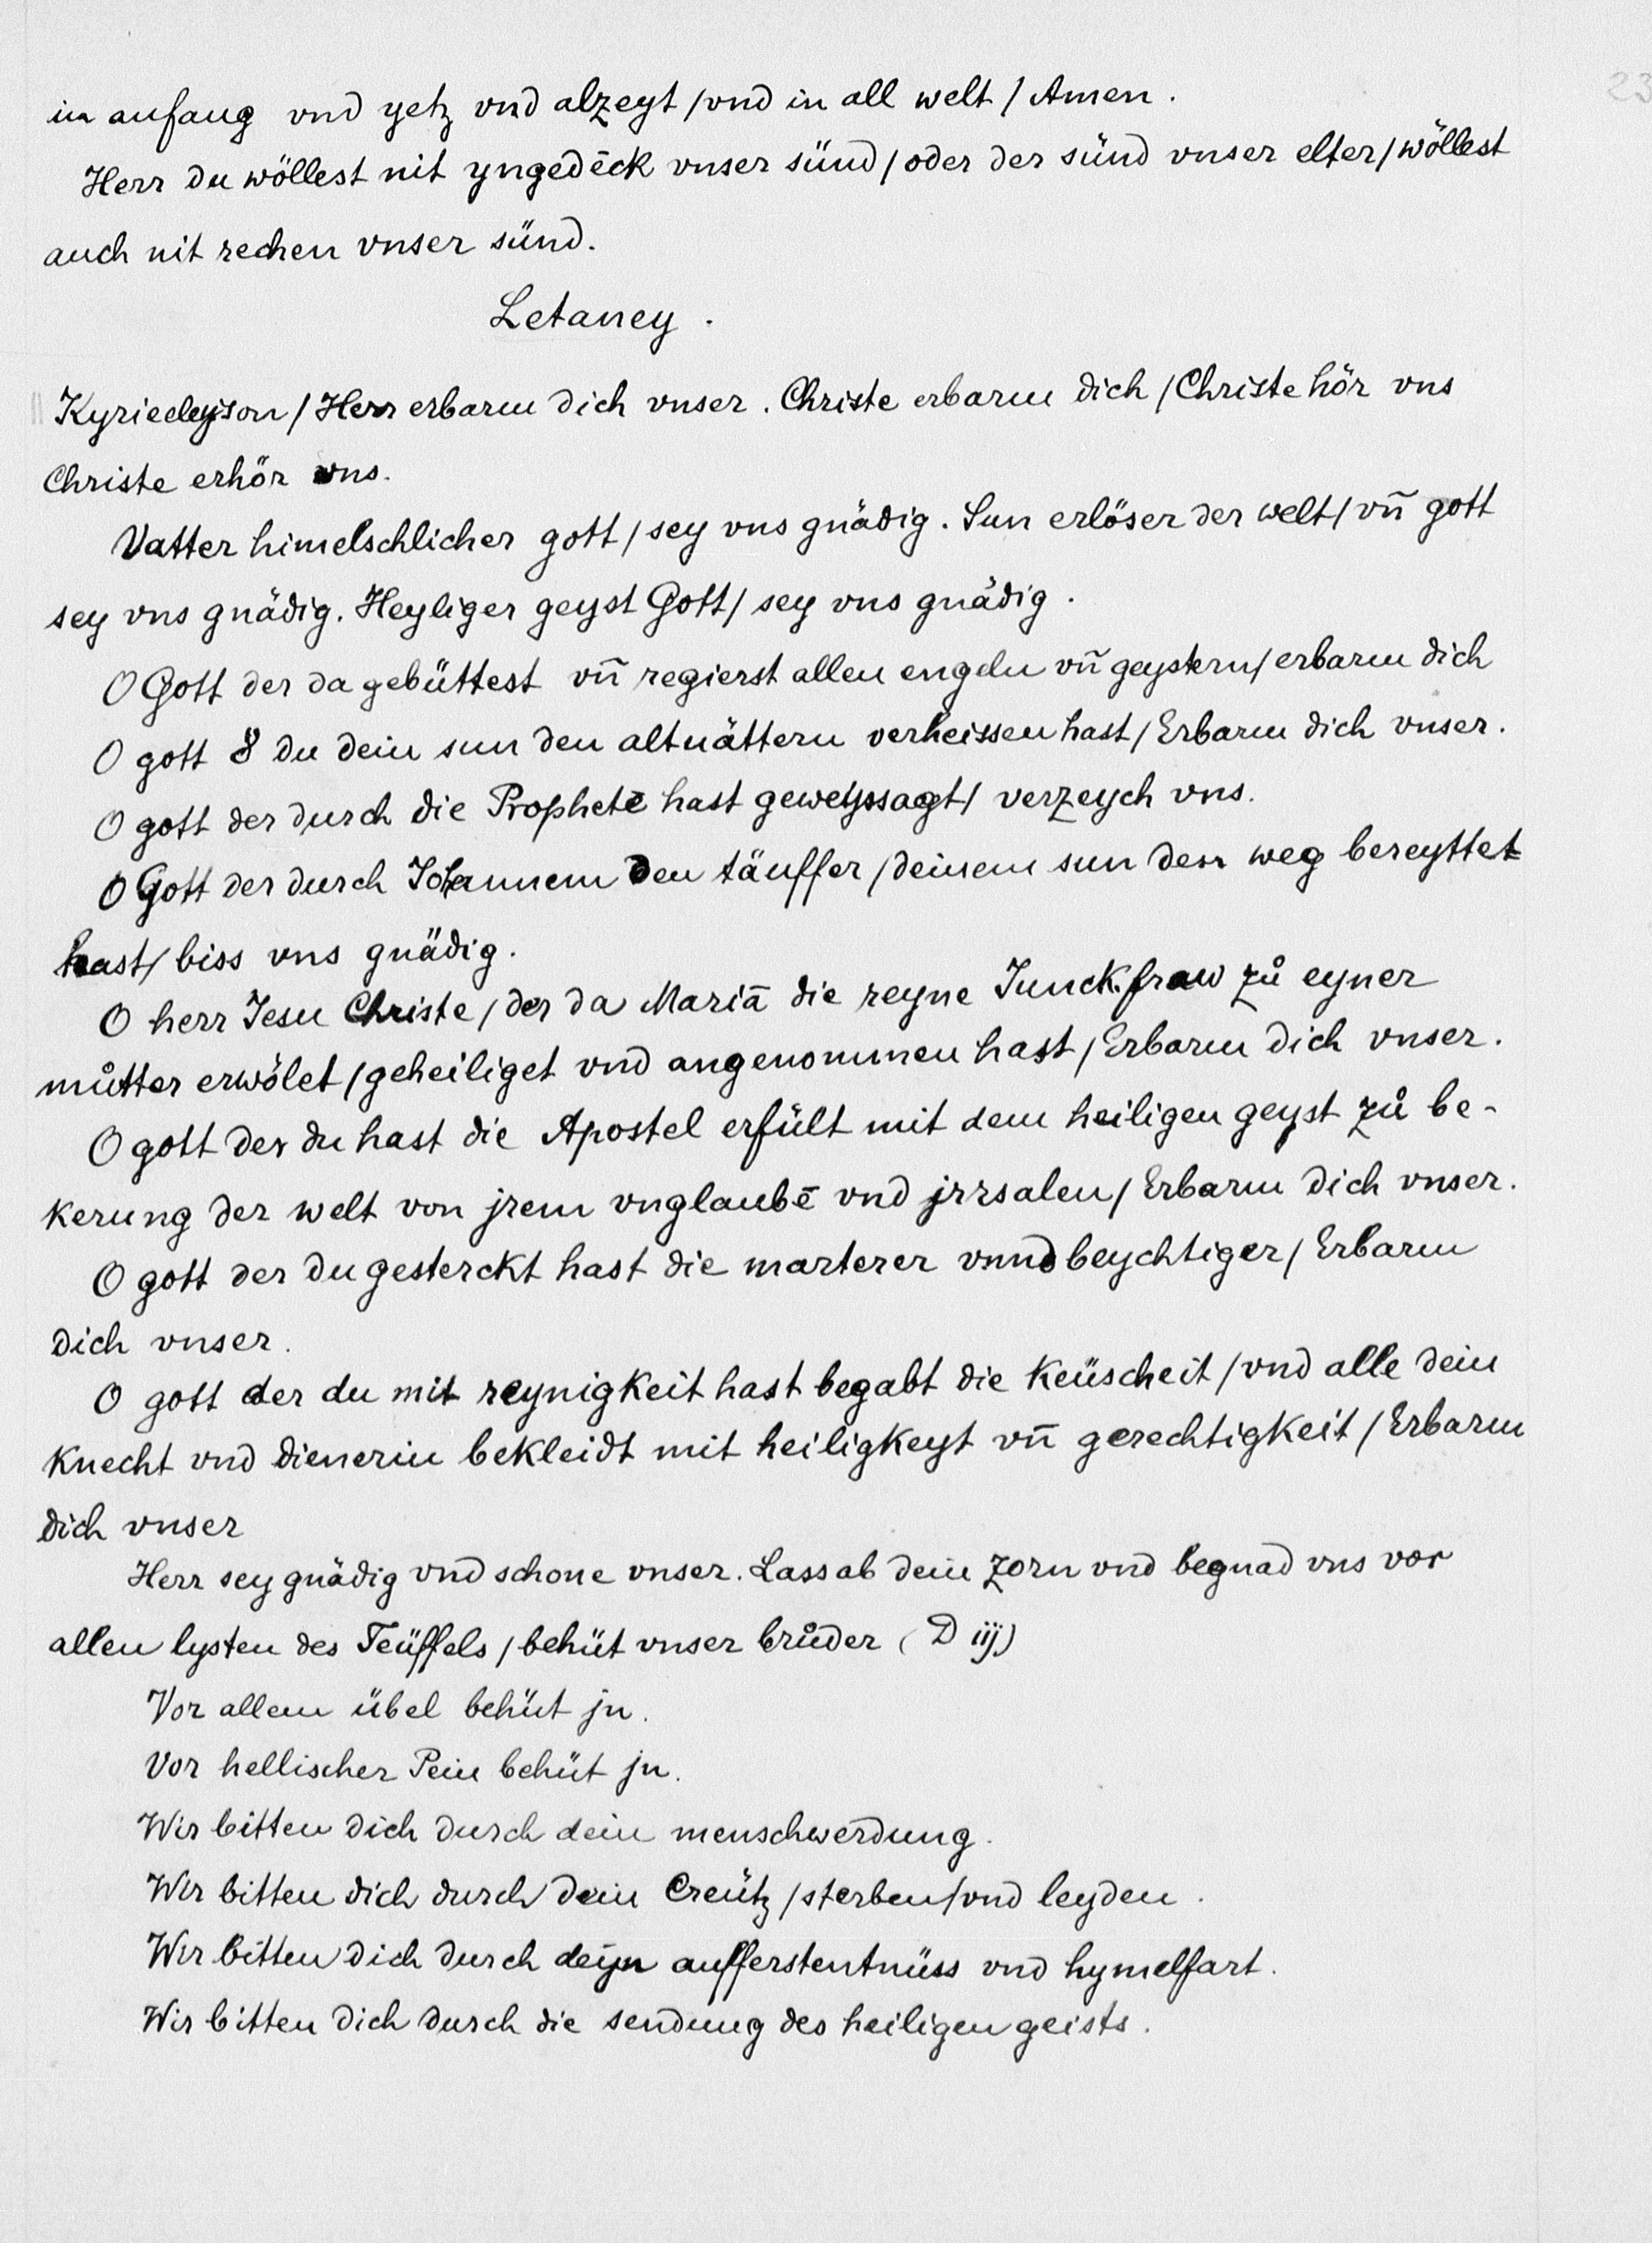 23
in anfang vnd yetz vnd alzeyt / vnd in all welt / Amen.
Herr du wöllest nit yngedēck vnser sünd / oder der sünd vnser elter / wöllest
auch nit rechen vnser sünd.
Letaney.
Kyrieeleyson / Herr erbarm dich vnser. Christe erbarm dich / Christe hör vns
Christe erhör vns.
Vatter himelschlicher gott / sey vns gnädig. Sun erlöser der welt / vn̄ gott
sey vns gnädig. Heyliger geyst Gott / sey vns gnädig.
O Gott der da gebüttest vn̄ regierst allen engeln vn̄ geystern / erbarm dich
O gott 8 du dein sun den altuättern verheissen hast / Erbarm dich vnser.
O gott der durch die Prophetē hast geweyssagt / verzeych vns.
O Gott der durch Johannem den täuffer / deinem sun den weg bereyttet
hast / biss vns gnädig.
O herr Jesu Christe / der da Mariā die reyne Junckfraw zů eyner
můtter erwölet / geheiliget vnd angenommen hast / Erbarm dich vnser.
O gott der du hast die Apostel erfült mit dem heiligen geyst zů be-
kerung der welt von jrem vnglaubē vnd jrrsalen / Erbarm dich vnser.
O gott der du gesterckt hast die marterer vnnd beychtiger / Erbarm
dich vnser.
O gott der du mit reynigkeit hast begabt die keüscheit / vnd alle dein
knecht vnd dienerin bekleidt mit heiligkeyt vn̄ gerechtigkeit / Erbarm
dich vnser
Herr sey gnädig vnd schone vnser. Lass ab dein zorn vnd begnad vns vor
allen lysten des Teüffels / behüt vnser brůder (D iij)
Vor allem übel behüt jn.
Vor hellischer Pein behüt jn.
Wir bitten dich durch dein menschwerdung.
Wir bitten dich durch dein Creütz / sterben / vnd leyden.
Wir bitten dich durch deyn aufferstentnüss vnd hymelfart.
Wir bitten dich durch die sendung des heiligen geists.